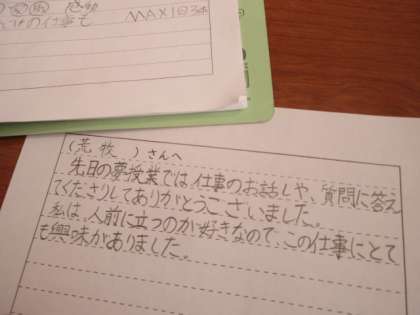 いけの仕事も
MAX1日3本
(荒牧 )さんへ
先日の夢授業では、仕事のお話しや、質問に答え
てくださりしてありがとうございました。
私は、人前に立つのが好きなので、この仕事にとて
も興味がありました。